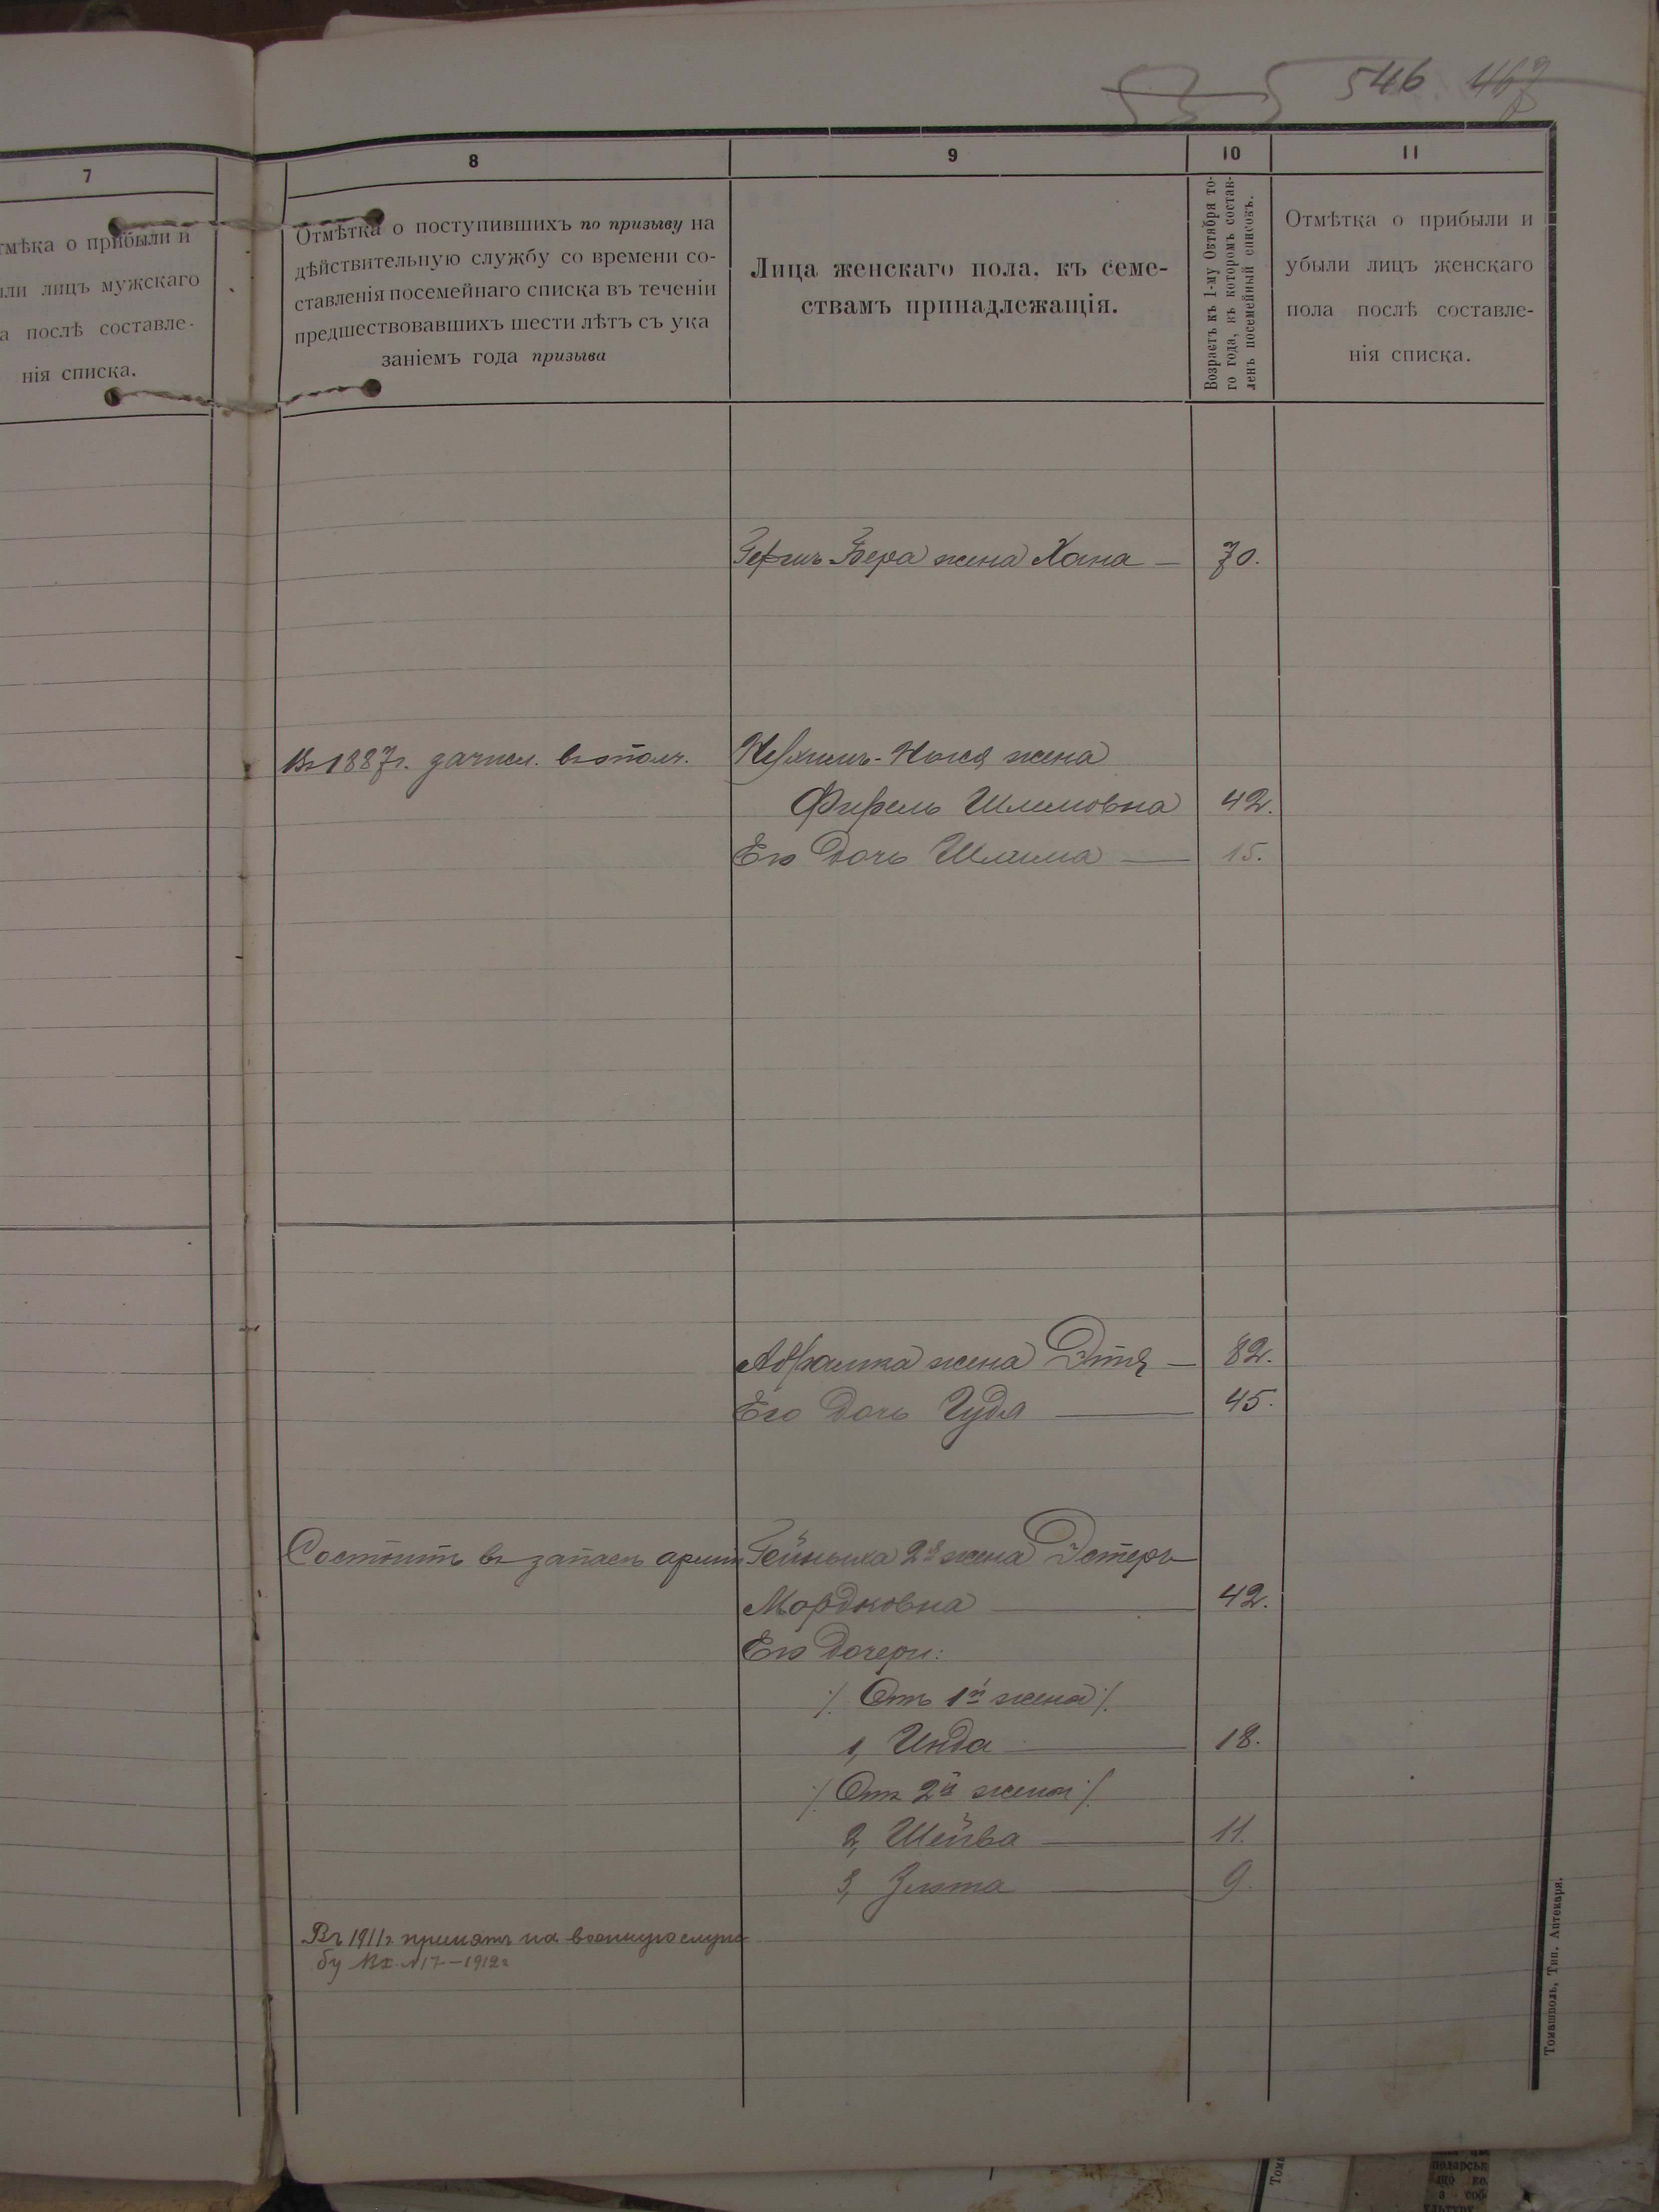 546 467
7
тмѣка о прибыли и
ыли лицъ мужскаго
а послѣ составле-
нія списка.
8
Отмѣтка о поступившихъ по призыву на
дѣйствительную службу со времени со-
ставленія посемейнаго списка въ теченіи
предшествовавшихъ шести лѣтъ съ ука
заніемъ года призыва
9
Лица женскаго пола, къ семе-
ствамъ принадлежащія.
10
Возрастъ къ 1-му Октября то-
го года, въ которомъ состав-
ленъ посемейный списокъ.
11
Отмѣтка о прибыли и
убыли лицъ женскаго
пола послѣ составле-
нія списка.
Бера жена Хана — 70.
Въ 1887 г. зачисл. въ ополч.
жена
Шлемовна 42.
Его дочь Шлима — 15.
Абрамка жена Этя — 82.
Его дочь Гудя — 45.
Состоитъ въ запасѣ арміи
Гейныха 2я жена Эстеръ
Мордковна — 42.
Его дочери:
/. Отъ 1й жены /.
1, Инда — 18.
/. Отъ 2й жены /.
2, Шейва — 11.
3, Злота — 9.
Въ 1911 г. принятъ на военную служ
бу Вх. № 17 – 1912 г
Томашполь, Тип. Аптекаря.